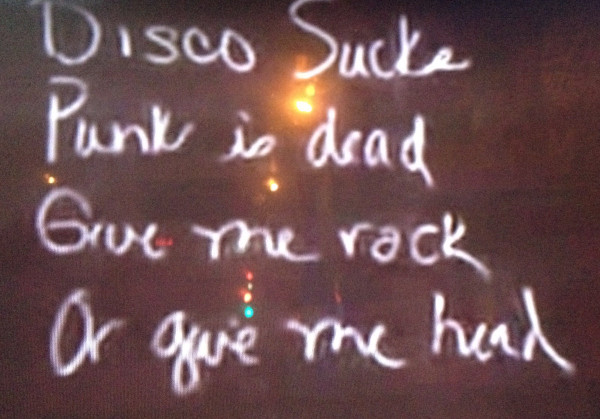 Disco Sucks
Punk is dead
Give me rock
Or give me head